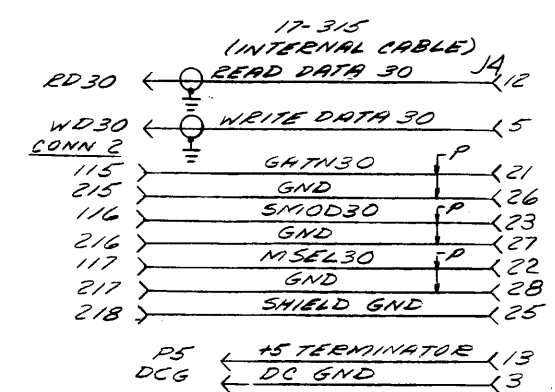 17-315
(INTERNAL CABLE)
J4
RD30 READ DATA 30 12
WD30 WRITE DATA 30 5
CONN 2
115 GATN30 P 21
215 GND 26
116 SMOD30 P 23
216 GND 27
117 MSEL30 P 22
217 GND 28
218 SHIELD GND 25
P5 +5 TERMINATOR 13
DCG DC GND 3